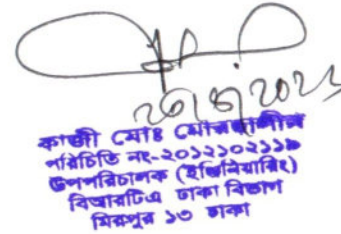 কাজী মোঃ
পরিচিতি নং-২০১২১০২১১৯
উপপরিচালক (ইঞ্জিনিয়ারিং)
বিআরটিএ ঢাকা বিভাগ
মিরপুর ১৩ ঢাকা